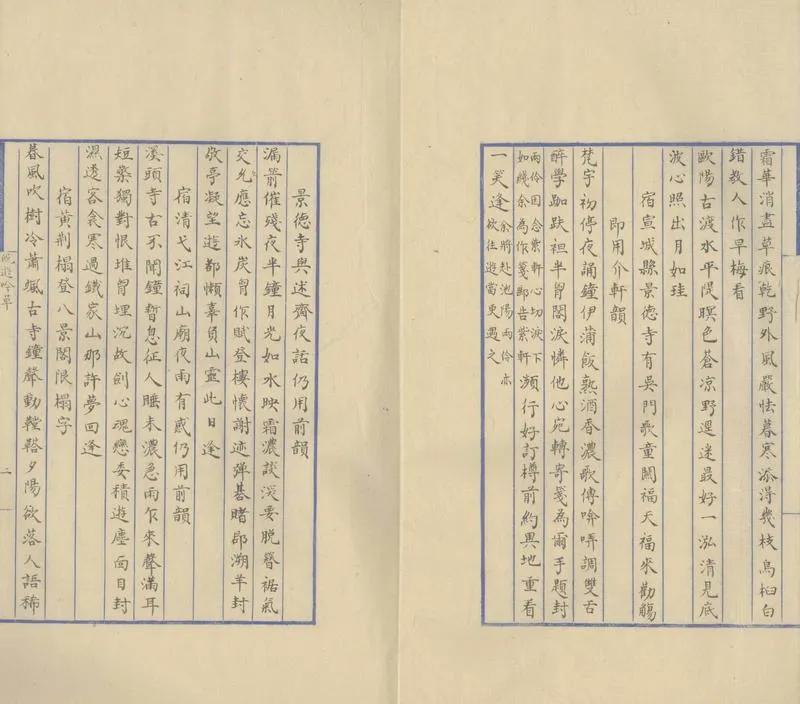 霜華消盡草痕乾野外風嚴怯暮寒添得幾枝烏桕白
錯教人作早梅看
歐陽古渡水平隄暝色蒼涼野逕迷最好一泓清見底
波心照出月如珪
宿宣城縣景德寺有吳門歌童闕福天福來勸觴
即用介軒韻
梵宇初停夜誦鐘伊蒲飯熟酒香濃歌傳喻哢調雙舌
醉學跏趺袒半胷閣淚憐他心宛轉寄箋為爾手題封
雨伶因念紫軒心切淚下
如綫余為作箋郵告紫軒
瀕行好訂樽前約異地重看
一笑逢
余將赴池陽兩伶亦
欲往遊當更遇之
景德寺與述齋夜話仍用前韻
漏箭催殘夜半鐘月光如水映霜濃談深要脫簪裾氣
交久應忘氷炭胷作賦登樓懷謝迹彈碁睹郡溯羊封
敬亭凝望遊都懶辜負山靈此日逢
宿清弋江祠山廟夜雨有感仍用前韻
溪頭寺古不聞鐘暫息征人睡未濃急雨乍來聲滿耳
短檠獨對恨堆胷埋沉故劍心魂戀委積遊塵面目封
濕透客衾寒過鐵家山那許夢回逢
宿黃荆榻登八景閣限榻字
春風吹樹冷蕭颯古寺鐘聲動鞺鞳夕陽欲落人語稀
皖遊吟草
二